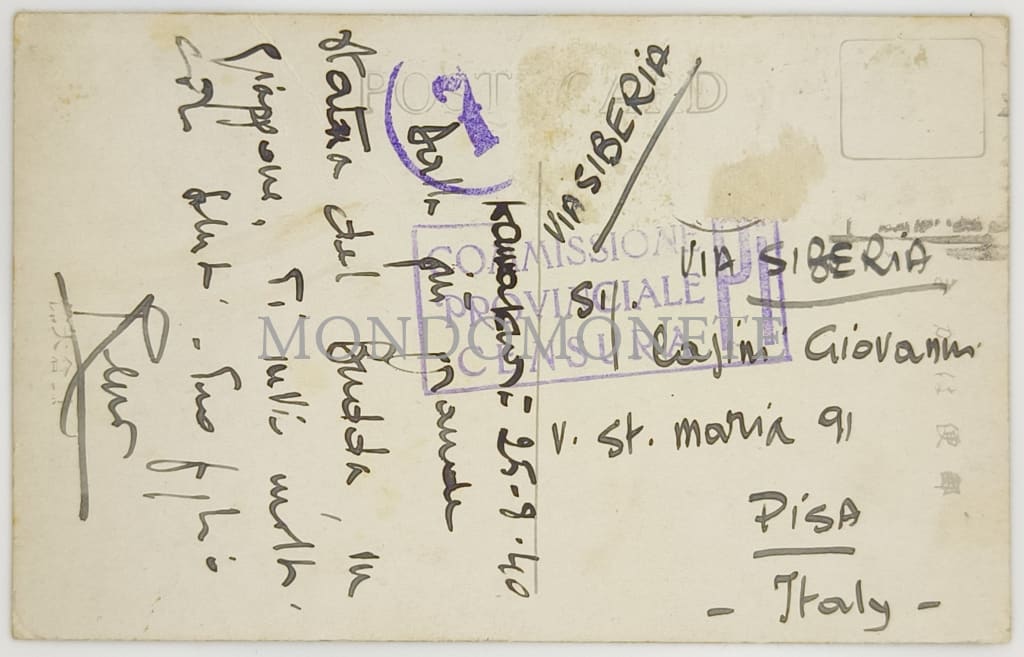 POST CARD
VIA SIBERIA
VIA SIBERIA
COMMISSIONE
PROVINCIALE
CENSURA
PI
MONDOMONETE
Sij. Giovanni
v. St. Maria 91
PiSA
- Italy -
25-9-40
Dalla più grande
statua del Budda, in
Giappone, Ti invio molti
cari saluti. Tuo figlio